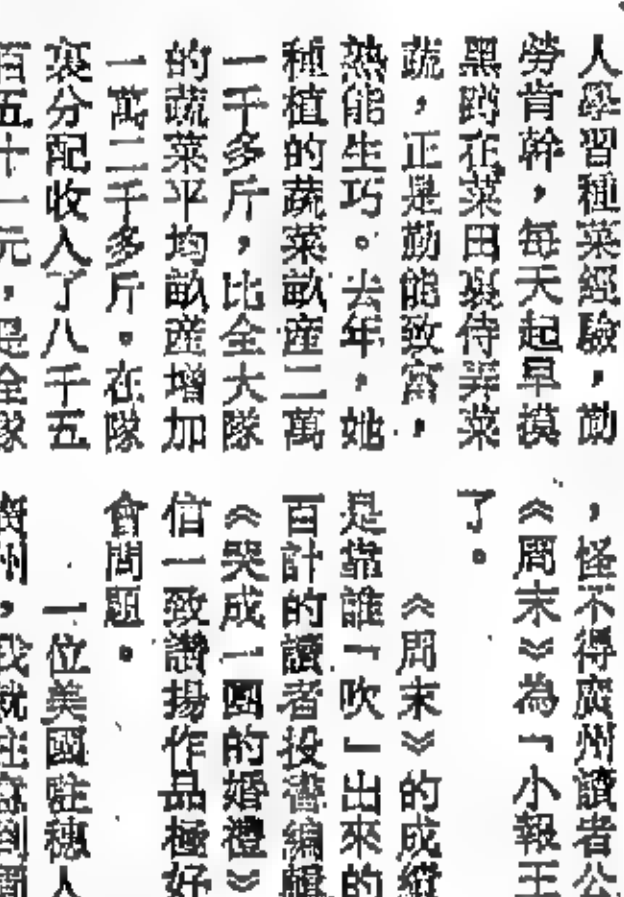 人學習種菜經驗，勤
勞肯幹，每天起早摸
黑蹲在菜田裏侍弄菜
蔬，正是勤能致富，
熟能生巧。去年，她
種植的蔬菜畝產二萬
一千多斤，比全大隊
的蔬菜平均畝產增加
一萬二千多斤。在隊
裏分配收入了八千五
百五十一元，是全隊
，怪不得廣州讀者公
《周末》為「小報王
了。
《周末》的成績
是靠誰「吹」出來的
百計的讀者投書編輯
《哭成一團的婚禮》
信一致讚揚作品極好
會問題。
一位美國駐穗人
廣州，我就